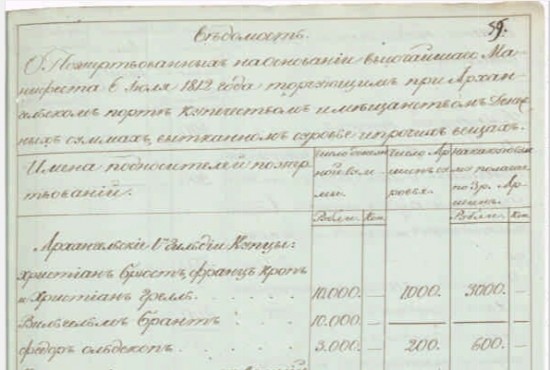 59.
Вѣдомость
О Пожертвованныхъ на основаніи высочайшаго Ма-
нифеста 6 Іюля 1812 года торгующимъ при Архан-
гельскомъ портѣ Купечествомъ и мѣщанствомъ Денеж-
ныхъ суммахъ, вытканномъ суровье и прочихъ вещахъ.
Имена подносителей пожер-
твованій.
число
число Ар-
шинъ
ровья.
на какой
по 3 р. Ар-
шинъ.
Рубли. Коп.
Рубли. Коп.
Архангельскіе 1й Гильдіи Купцы:
христіанъ Брюстъ, францъ Кротъ
и Христіанъ Грелль. 10.000. — 1000. 3000. —
Вильгельмъ Брантъ 10.000. —
федоръ 3.000. — 200. 600. —